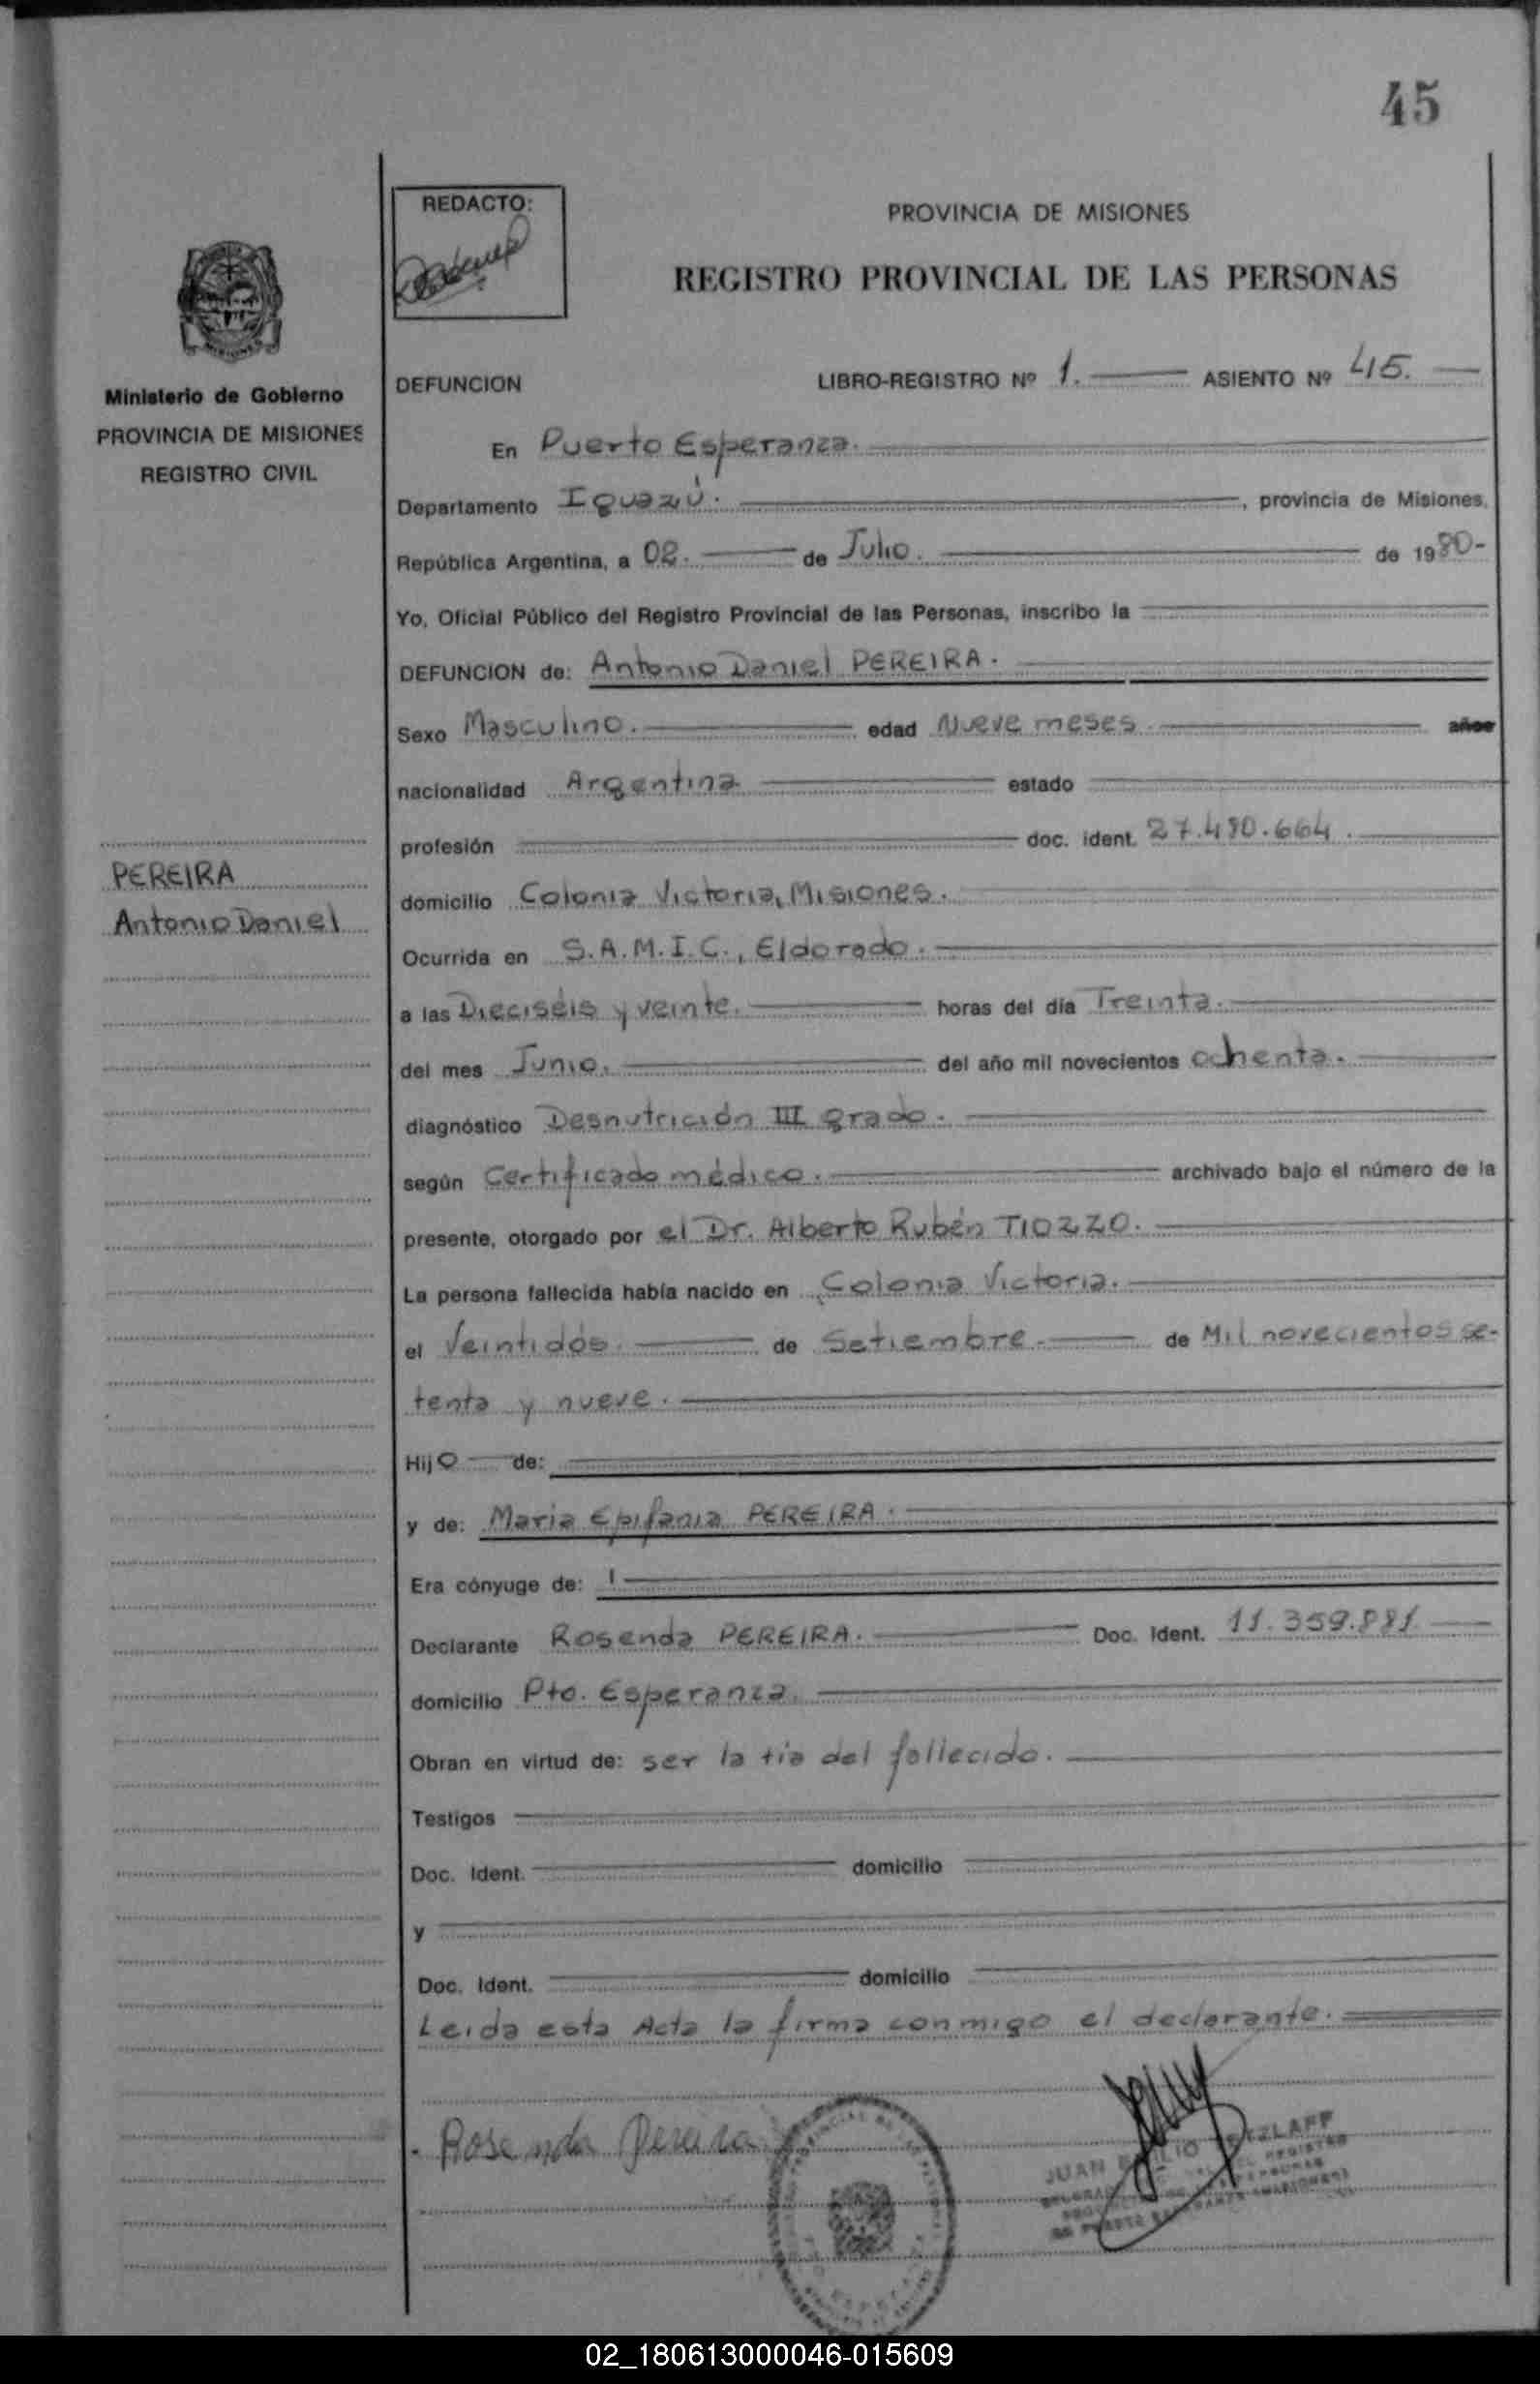 45
REDACTO:
PROVINCIA DE MISIONES
REGISTRO PROVINCIAL DE LAS PERSONAS
MISIONES
Ministerio de Gobierno
PROVINCIA DE MISIONES
REGISTRO CIVIL
DEFUNCION LIBRO-REGISTRO Nº 1. ASIENTO Nº 45.
En Puerto Esperanza.
Departamento Iguazú. , provincia de Misiones,
República Argentina, a 02. de Julio. de 1980-
Yo, Oficial Público del Registro Provincial de las Personas, inscribo la
DEFUNCION de: Antonio Daniel PEREIRA.
Sexo Masculino. edad Nueve meses años
nacionalidad Argentina estado
profesión doc. ident. 27.480.664.
PEREIRA
Antonio Daniel
domicilio Colonia Victoria, Misiones.
Ocurrida en S.A.M.I.C., Eldorado.
a las Dieciséis y veinte. horas del día Treinta.
del mes Junio. del año mil novecientos ochenta.
diagnóstico Desnutrición III grado.
según Certificado médico. archivado bajo el número de la
presente, otorgado por el Dr. Alberto Rubén TIOZZO.
La persona fallecida había nacido en Colonia Victoria.
el Veintidós de Setiembre de Mil novecientos se-
tenta y nueve.
Hijo de:
y de: Maria Epifania PEREIRA.
Era cónyuge de:
Declarante Rosenda PEREIRA. Doc. Ident. 11.359.881
domicilio Pto. Esperanza.
Obran en virtud de: ser la tia del fallecido.
Testigos
Doc. Ident. domicilio
y
Doc. Ident. domicilio
Leida esta Acta la firma conmigo el declarante.
Rosenda Pereira
JUAN
02_180613000046-015609